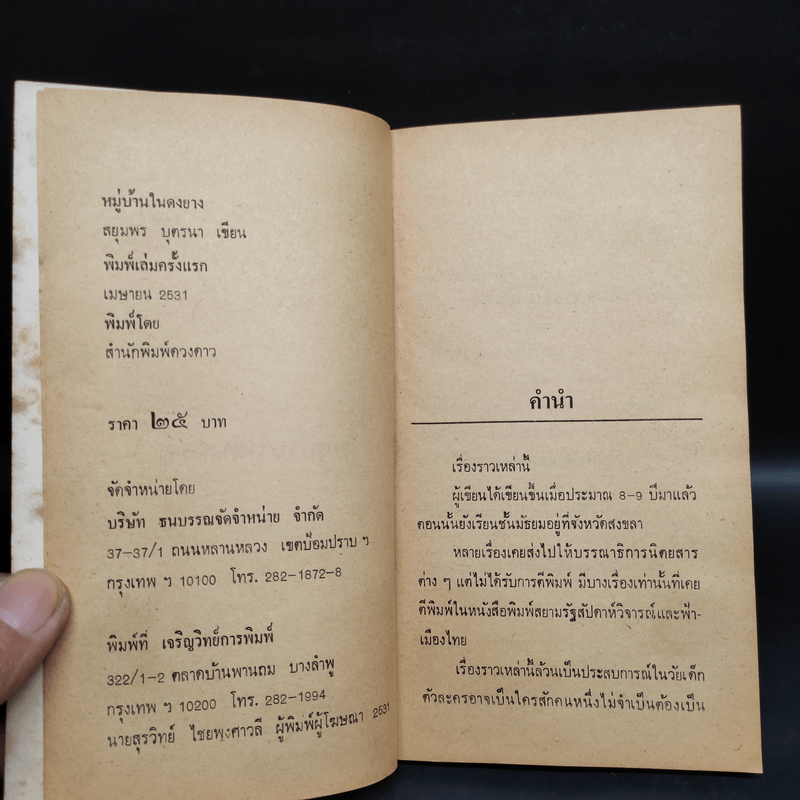 หมู่บ้านในดงยาง
สยุมพร บุตรนา เขียน
พิมพ์เล่มครั้งแรก
เมษายน 2531
พิมพ์โดย
สำนักพิมพ์ดวงดาว
ราคา ๒๕ บาท
จัดจำหน่ายโดย
บริษัท ธนบรรณจัดจำหน่าย จำกัด
37-37/1 ถนนหลานหลวง เขตป้อมปราบ ฯ
กรุงเทพ ฯ 10100 โทร. 282-1872-8
พิมพ์ที่ เจริญวิทย์การพิมพ์
322/1-2 ตลาดบ้านพานถม บางลำพู
กรุงเทพ ฯ 10200 โทร. 282-1994
นายสุรวิทย์ ไชยพงศาวลี ผู้พิมพ์ผู้โฆษณา 2531
คำนำ
เรื่องราวเหล่านี้
ผู้เขียนได้เขียนขึ้นเมื่อประมาณ 8-9 ปีมาแล้ว
ตอนนั้นยังเรียนชั้นมัธยมอยู่ที่จังหวัดสงขลา
หลายเรื่องเคยส่งไปให้บรรณาธิการนิตยสาร
ต่าง ๆ แต่ไม่ได้รับการตีพิมพ์ มีบางเรื่องเท่านั้นที่เคย
ตีพิมพ์ในหนังสือพิมพ์สยามรัฐสัปดาห์วิจารณ์และฟ้า-
เมืองไทย
เรื่องราวเหล่านี้ล้วนเป็นประสบการณ์ในวัยเด็ก
ตัวละครอาจเป็นใครสักคนหนึ่งไม่จำเป็นต้องเป็น